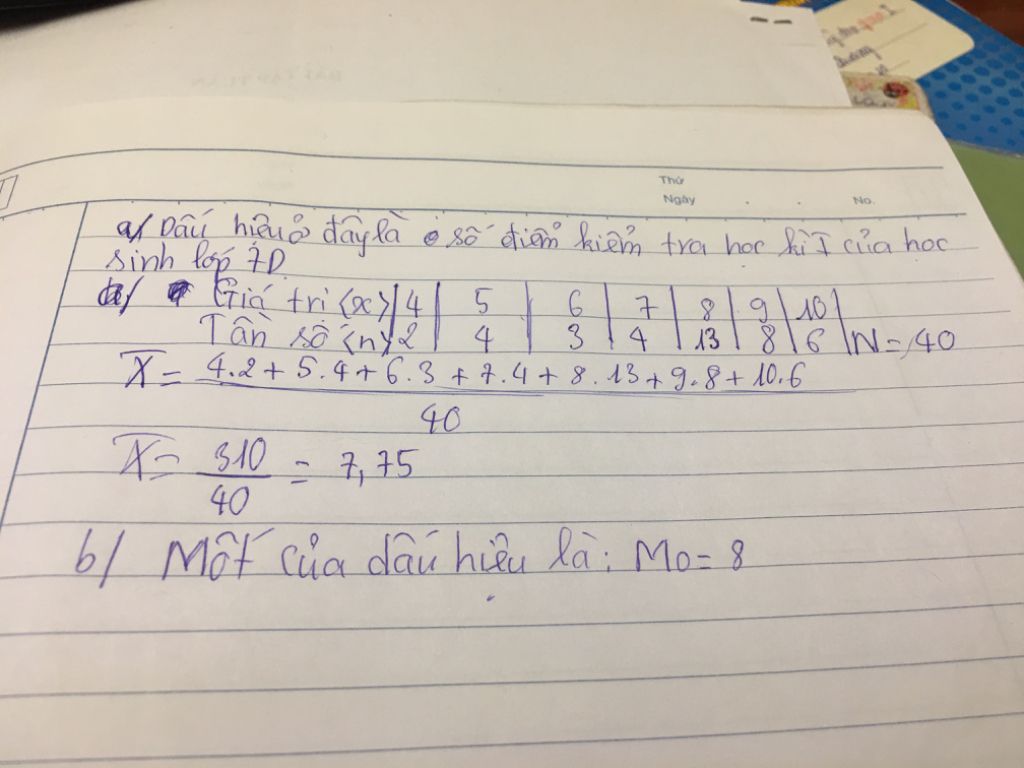 Thứ
Ngày
No.
a/ Dấu hiệu ở đây là số điểm kiểm tra học kì I của học
sinh lớp 7D
Giá trị (x) | 4 | 5 | 6 | 7 | 8 | 9 | 10 |
Tần số (n) 2 | 4 | 3 | 4 | 13 | 8 | 6 | N = 40
X̅ = 4.2 + 5.4 + 6.3 + 7.4 + 8.13 + 9.8 + 10.6
40
X̅ = 310 = 7,75
40
b/ Mốt của dấu hiệu là: Mo = 8